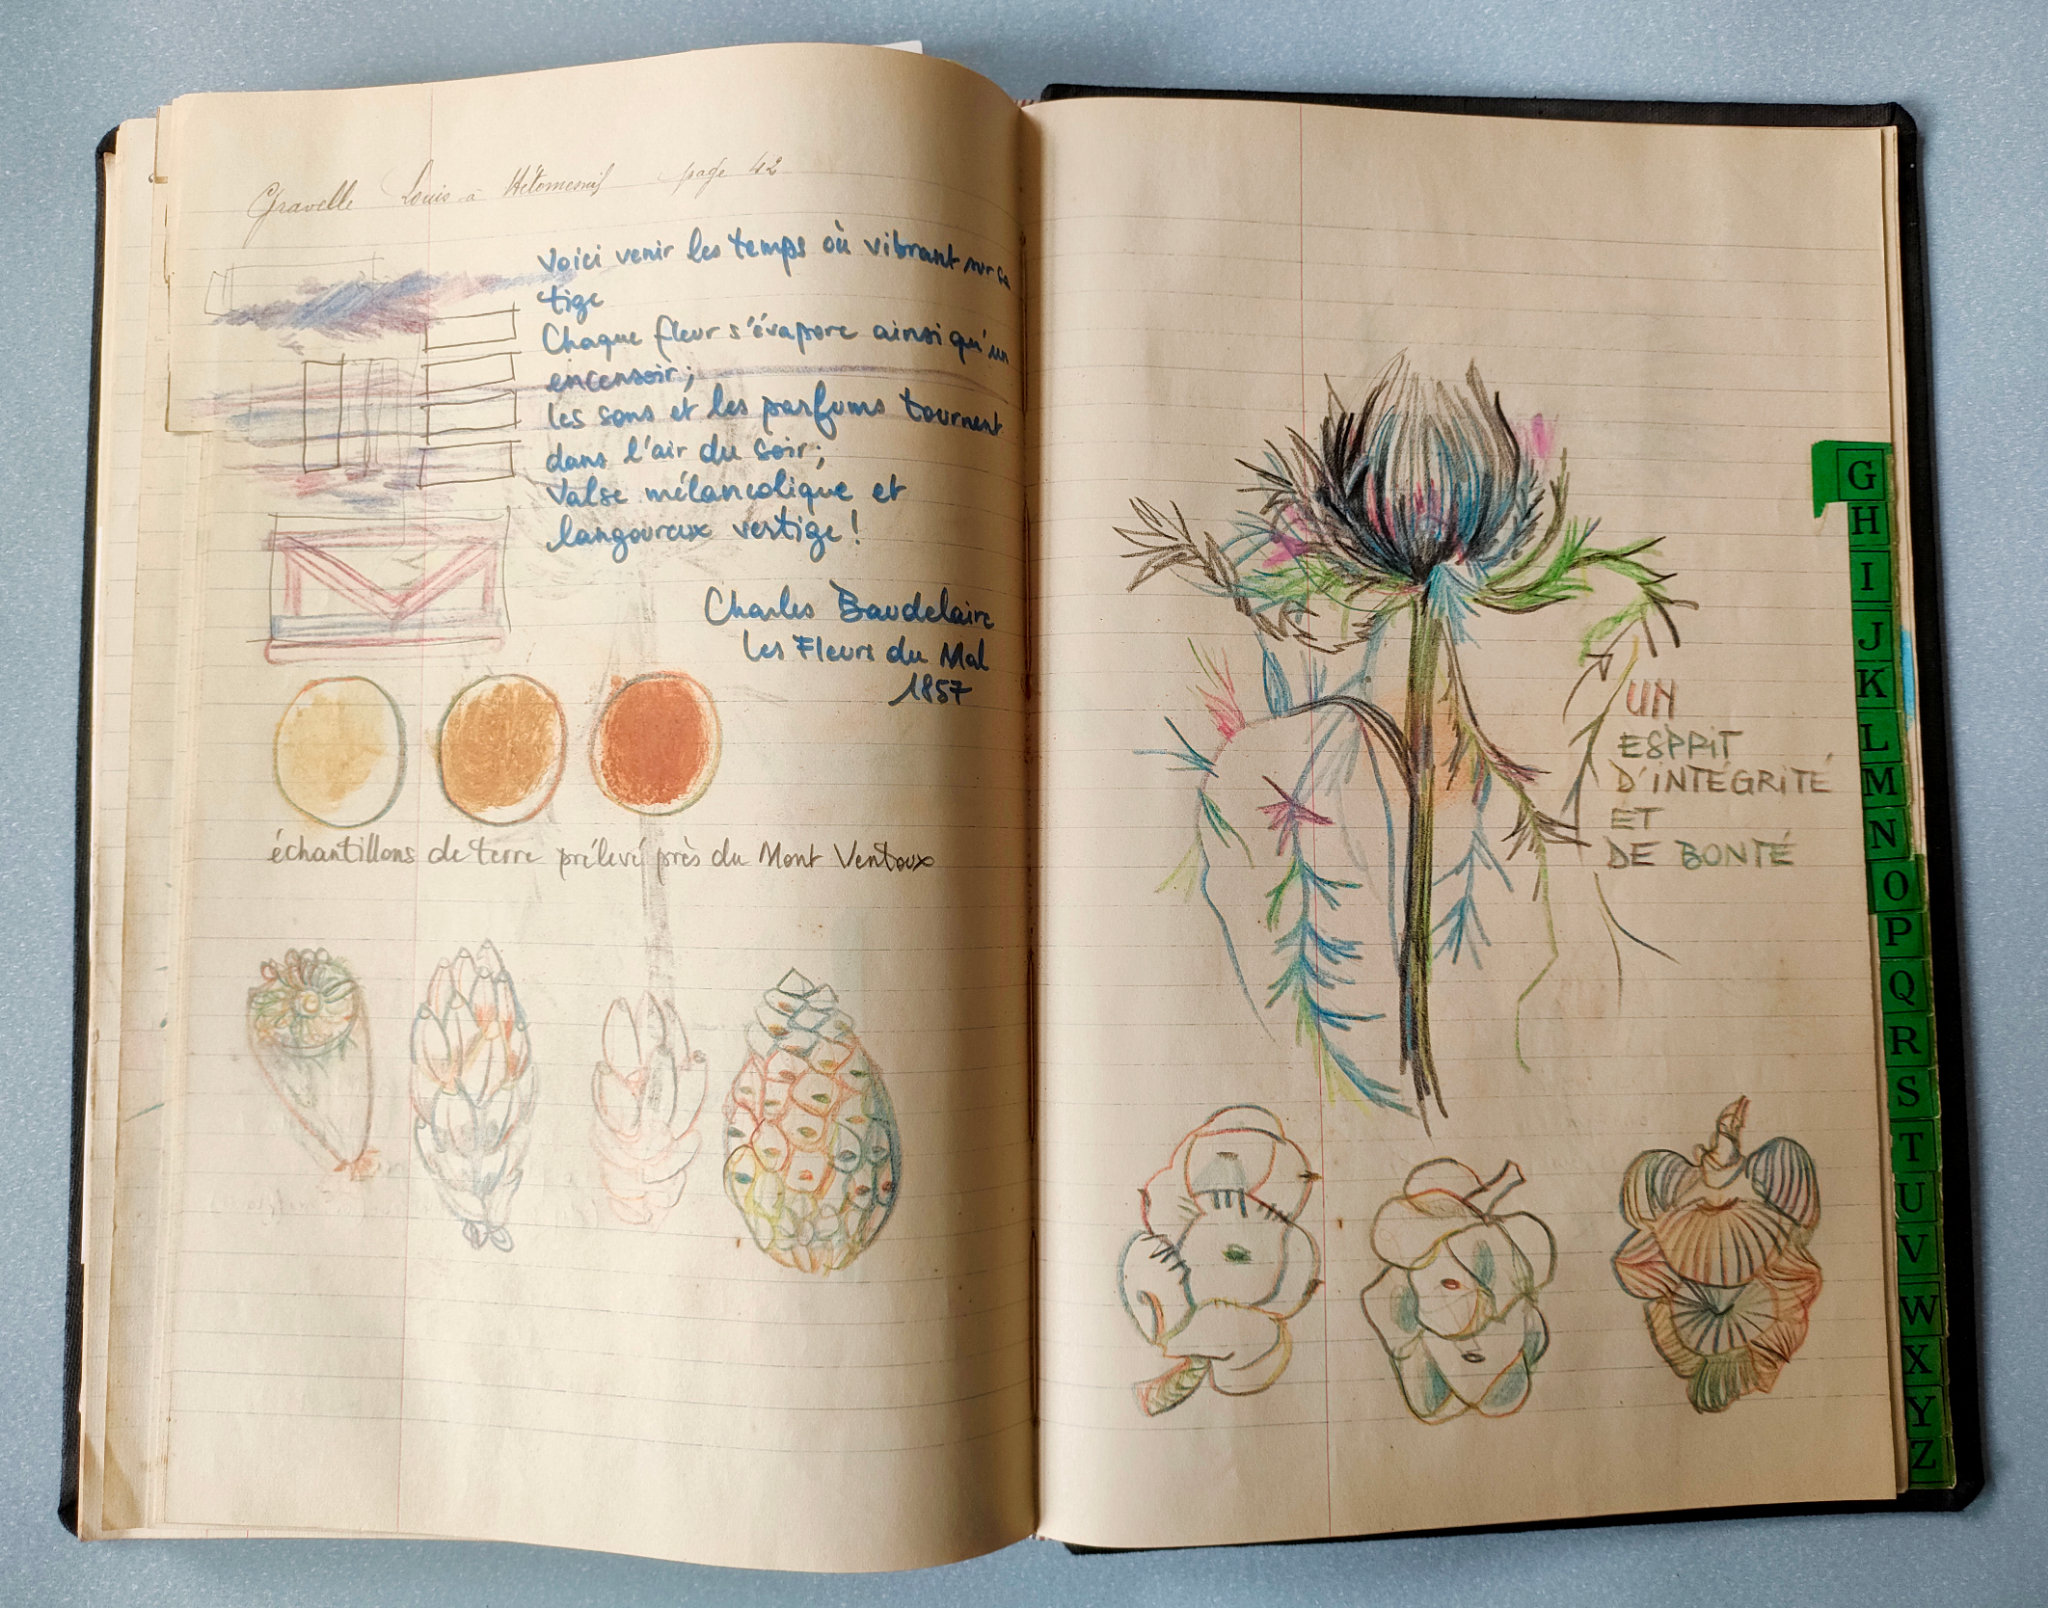 Gravelle Louis à Hétomesnil page 42
Voici venir les temps où vibrant sur sa
tige
Chaque fleur s'évapore ainsi qu'un
encensoir;
les sons et les parfums tournent
dans l'air du soir;
Valse mélancolique et
langoureux vertige!
Charles Baudelaire
Les Fleurs du Mal
1857
échantillons de terre prélevé près du Mont Ventoux
UN
ESPRIT
D'INTÉGRITÉ
ET
DE BONTÉ
G
H
I
J
K
L
M
N
O
P
Q
R
S
T
U
V
W
X
Y
Z